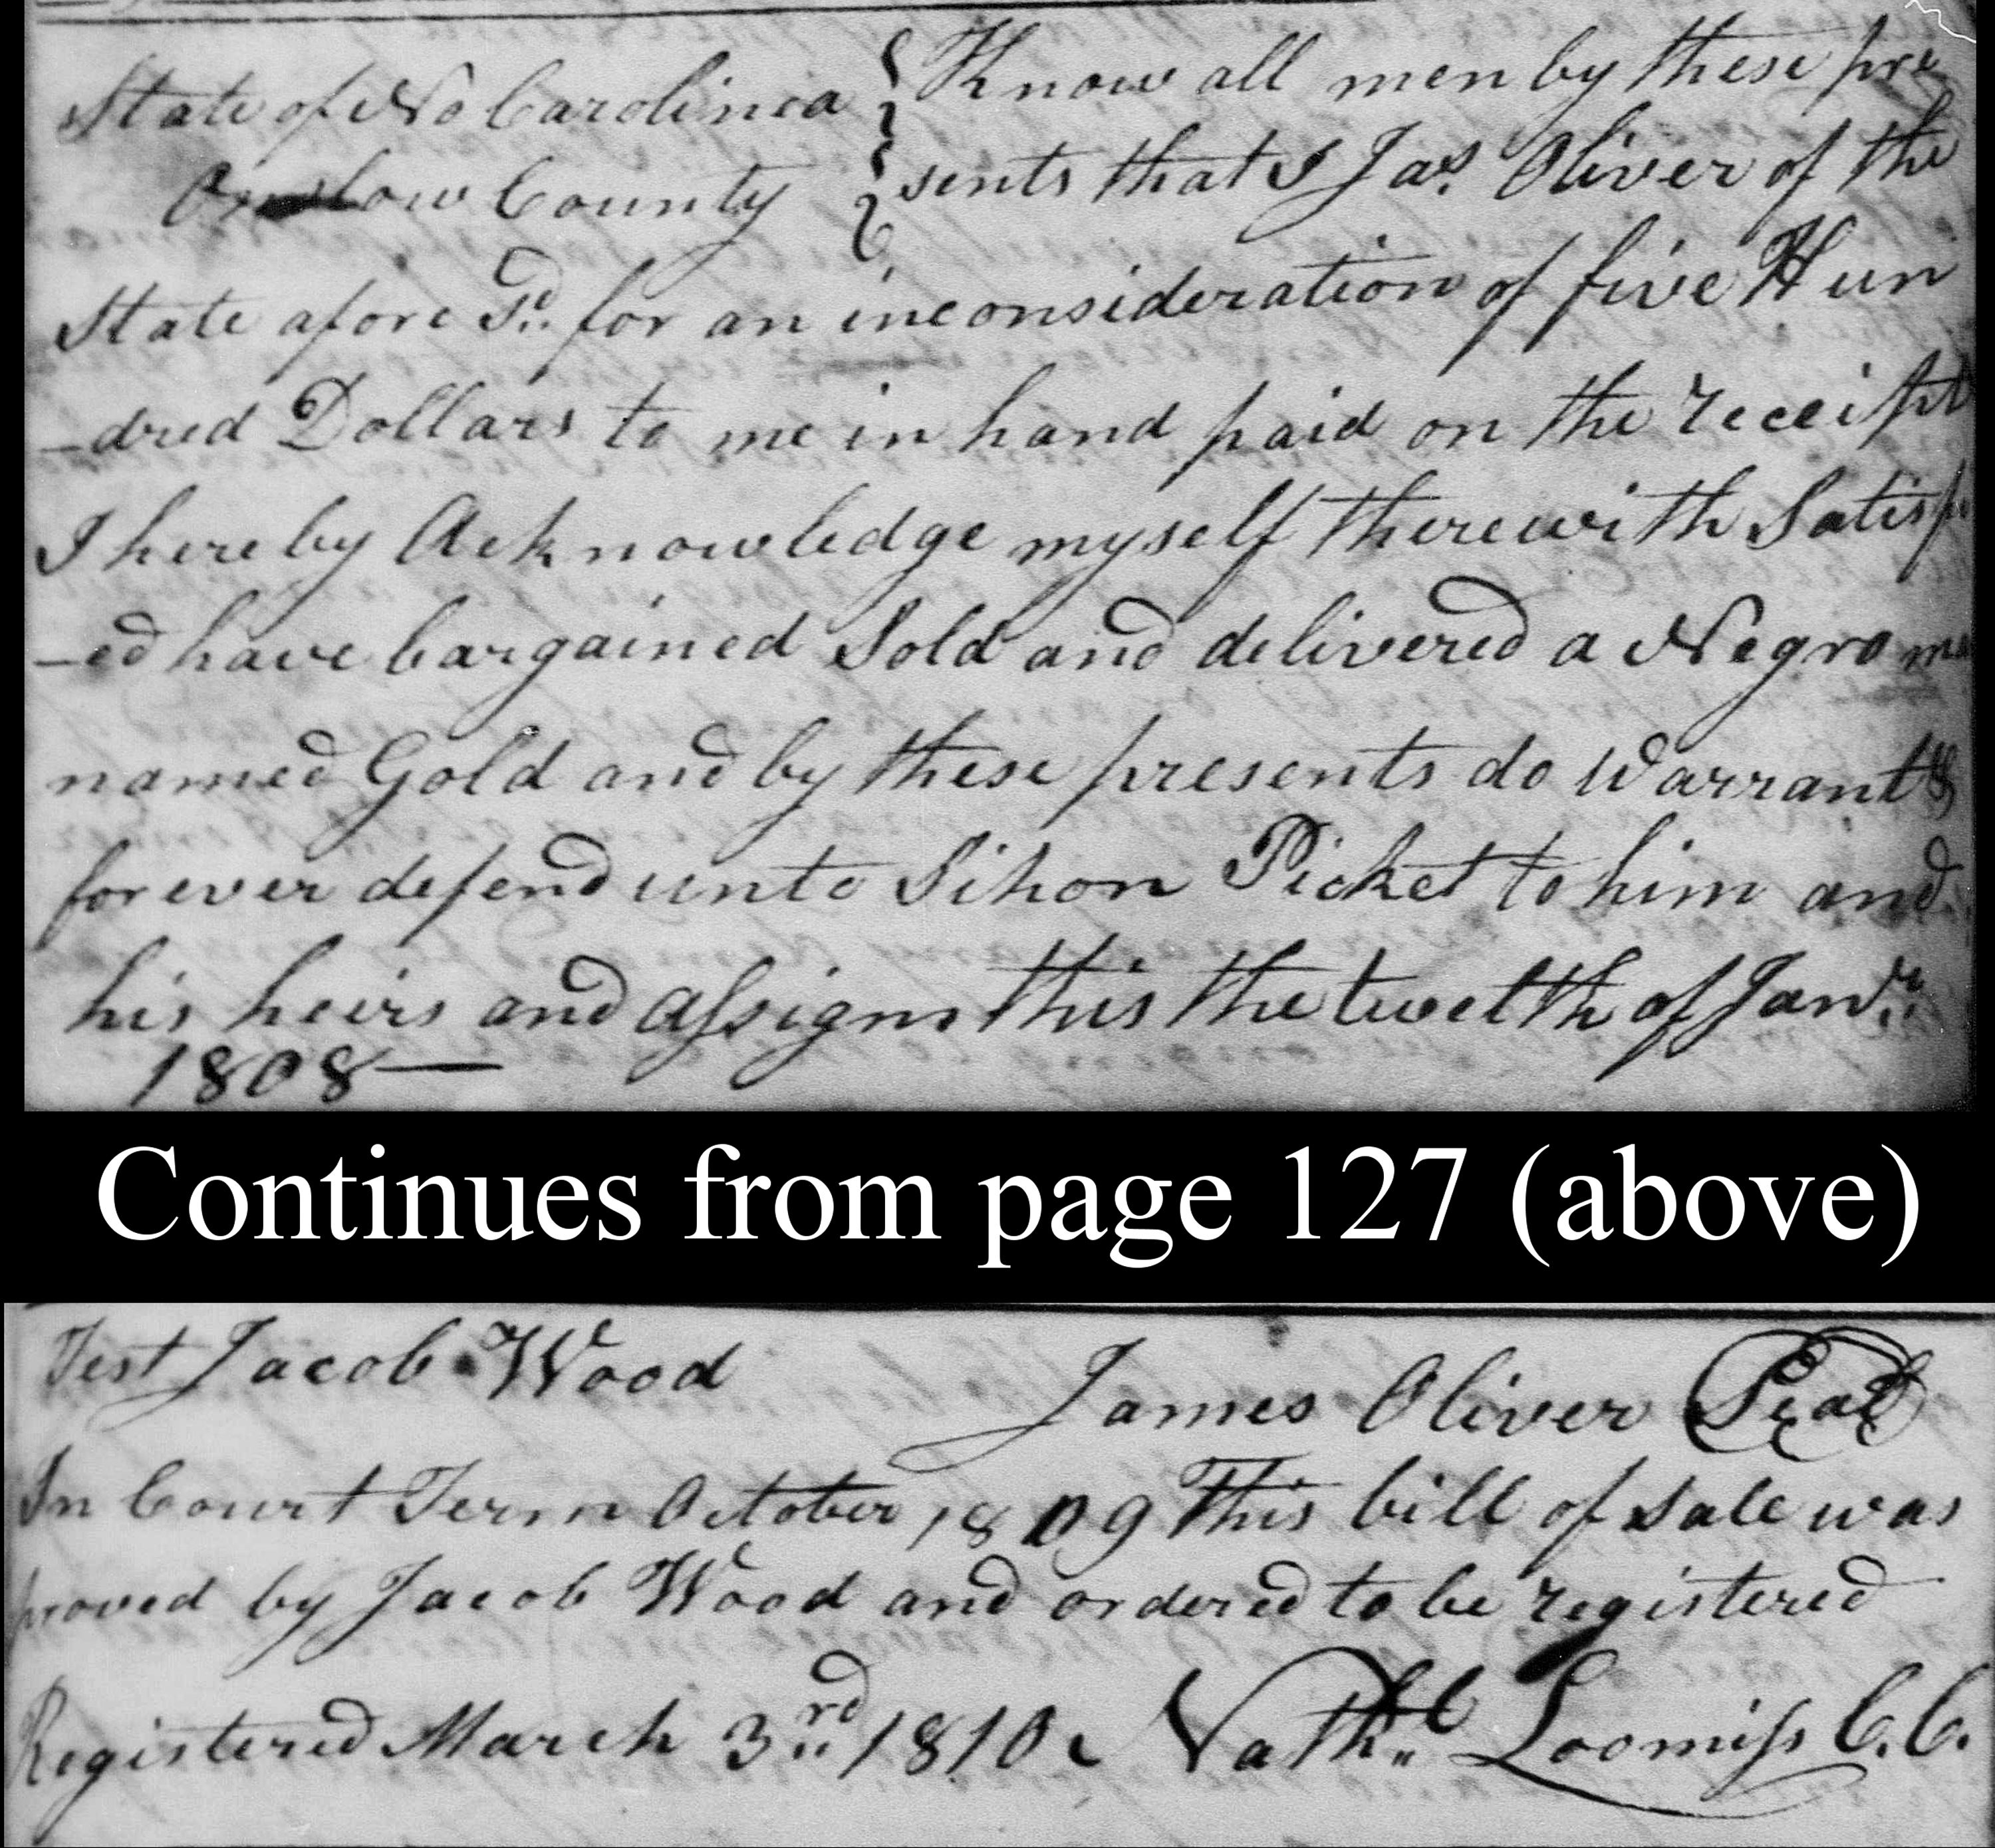 State of No Carolinea } Know all men by these pre
Onslow County } sents that I Jas. Oliver of the
State afore Sd. for an inconsideration of five Hun
-dred Dollars to me in hand paid on the receipt
I hereby Acknowledge myself therewith Satisfi
-ed have bargained Sold and delivered a Negro ma
named Gold and by these presents do Warrant &
for ever defend unto Sihon Picket to him and
his heirs and assigns this the twelth of Janr.
1808 —
Continues from page 127 (above)
Test Jacob Wood
James Oliver Seal
In Court Term October 1809 This bill of sale was
proved by Jacob Wood and ordered to be registered
Registered March 3rd 1810 Nathl. Loomiss C.C.